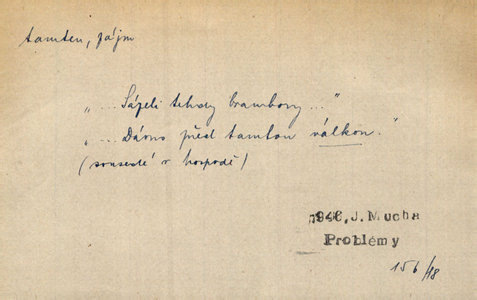 tamten, zájm
„ ... Sázeli tehdy brambory ..."
„ ... Dávno před tamtou válkou."
(sousedé v hospodě)
1946, J. Mucha
Problémy
156/18